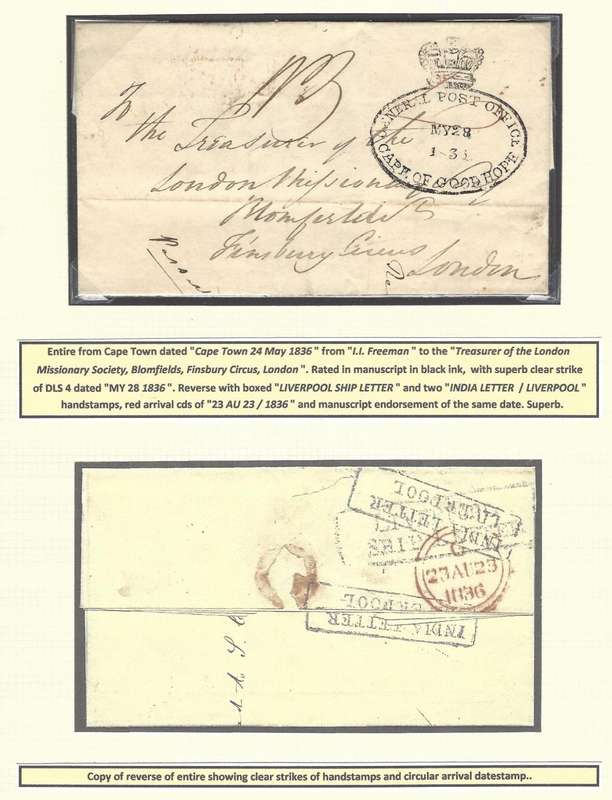 GENERAL POST OFFICE
MY 28
CAPE OF GOOD HOPE
To
the Treasurer of the
London Missionary
Finsbury Circus
London
Entire from Cape Town dated "Cape Town 24 May 1836" from "I.I. Freeman" to the "Treasurer of the London
Missionary Society, Blomfields, Finsbury Circus, London". Rated in manuscript in black ink, with superb clear strike
of DLS 4 dated "MY 28 1836". Reverse with boxed "LIVERPOOL SHIP LETTER" and two "INDIA LETTER / LIVERPOOL"
handstamps, red arrival cds of "23 AU 23 / 1836" and manuscript endorsement of the same date. Superb.
INDIA LETTER
LIVERPOOL
23 AU 23
1836
INDIA LETTER
Copy of reverse of entire showing clear strikes of handstamps and circular arrival datestamp..